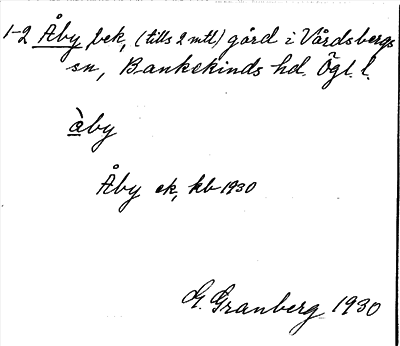 1-2 Åby, bek, (tills 2 mtl) gård i Vårdsbergs
sn, Bankekinds hd. Ögl. l.
åby
Åby ek, kb 1930
G. Granberg 1930